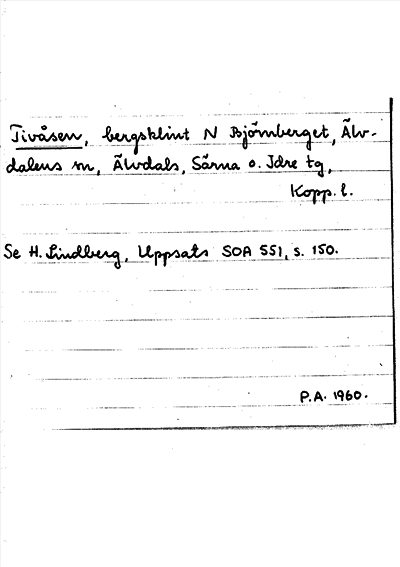 Tivåsen, bergsklint N Björnberget, Älv-
dalens sn, Älvdals, Särna o. Idre tg,
Kopp. l.
Se H. Lindberg, Uppsats SOA 551, s. 150.
P.A. 1960.